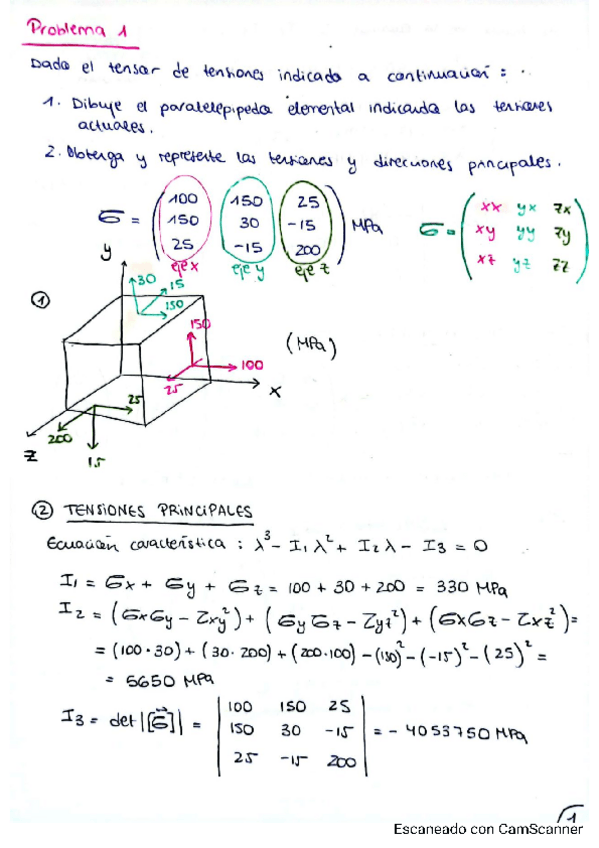 Problema 1
Dado el tensor de tensiones indicado a continuación :
1. Dibuje el paralelepipedo elemental indicando las tensiones
actuales.
2. Obtenga y represente las tensiones y direcciones principales.
σ = ( 100 150 25
150 30 -15
25 -15 200 ) MPa
eje x eje y eje z
σ = ( xx yx zx
xy yy zy
xz yz zz )
①
y
30
15
150
150
100
25
x
(MPa)
25
200
15
z
② TENSIONES PRINCIPALES
Ecuación característica : λ³ - I₁ λ² + I₂ λ - I₃ = 0
I₁ = σx + σy + σz = 100 + 30 + 200 = 330 MPa
I₂ = (σxσy - τxy²) + (σyσz - τyz²) + (σxσz - τxz²) =
= (100·30) + (30·200) + (200·100) - (150)² - (-15)² - (25)² =
= 5650 MPa
I₃ = det|[σ]| = | 100 150 25
150 30 -15
25 -15 200 | = - 4053750 MPa
1
Escaneado con CamScanner